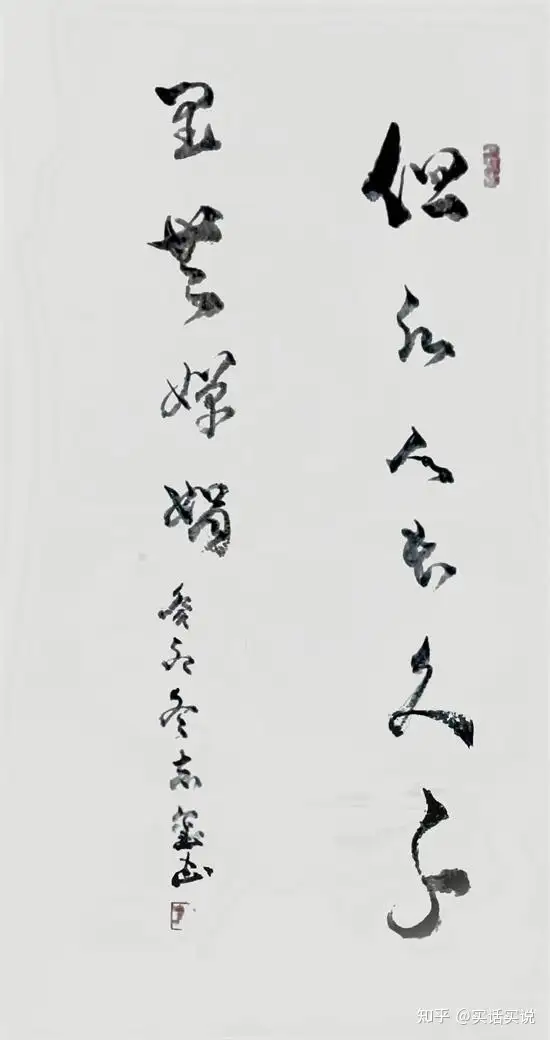 但愿人长久千
里共婵娟 癸卯冬志
知乎 @实话实说